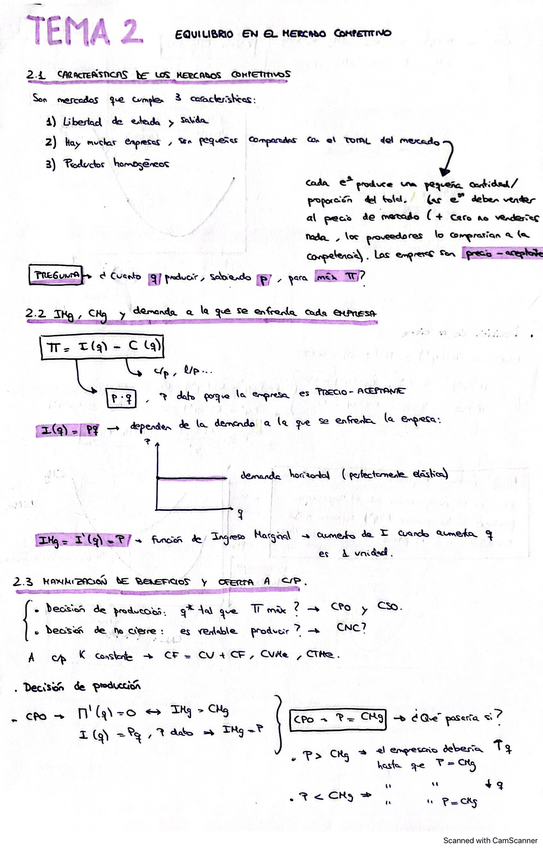 TEMA 2 EQUILIBRIO EN EL MERCADO COMPETITIVO
2.1 CARACTERÍSTICAS DE LOS MERCADOS COMPETITIVOS
Son mercados que cumplen 3 características:
1) Libertad de entrada y salida
2) Hay muchas empresas, son pequeñas comparadas con el TOTAL del mercado
3) Productos homogéneos
cada eª produce una pequeña cantidad/
proporción del total. las eªs deben vender
al precio de mercado (+ caro no venderías
nada, los proveedores lo comprarían a la
competencia). Las empresas son precio-aceptante
PREGUNTA → ¿Cuánto q producir, sabiendo p, para máx π?
2.2 IMg, CMg y demanda a la que se enfrenta cada EMPRESA
π = I(q) - C(q)
c/p, l/p...
P·q, P dato porque la empresa es PRECIO-ACEPTANTE
I(q) = Pq → dependen de la demanda a la que se enfrenta la empresa:
P
demanda horizontal (perfectamente elástica)
q
IMg = I'(q) = P → función de Ingreso Marginal → aumento de I cuando aumenta q
es 1 unidad.
2.3 MAXIMIZACIÓN DE BENEFICIOS Y OFERTA A C/P.
• Decisión de producción: q* tal que π máx? → CPO y CSO.
• Decisión de no cierre: es rentable producir? → CNC?
A c/p K constante → CF = CV + CF, CVMe, CTMe.
• Decisión de producción
- CPO → π'(q) = 0 ↔ IMg = CMg
I(q) = Pq, P dato ⇒ IMg = P
CPO → P = CMg → ¿Qué pasaría si?
• P > CMg ⇒ el empresario debería ↑q
hasta que P = CMg
• P < CMg ⇒ " " ↓q
" " P = CMg
Scanned with CamScanner